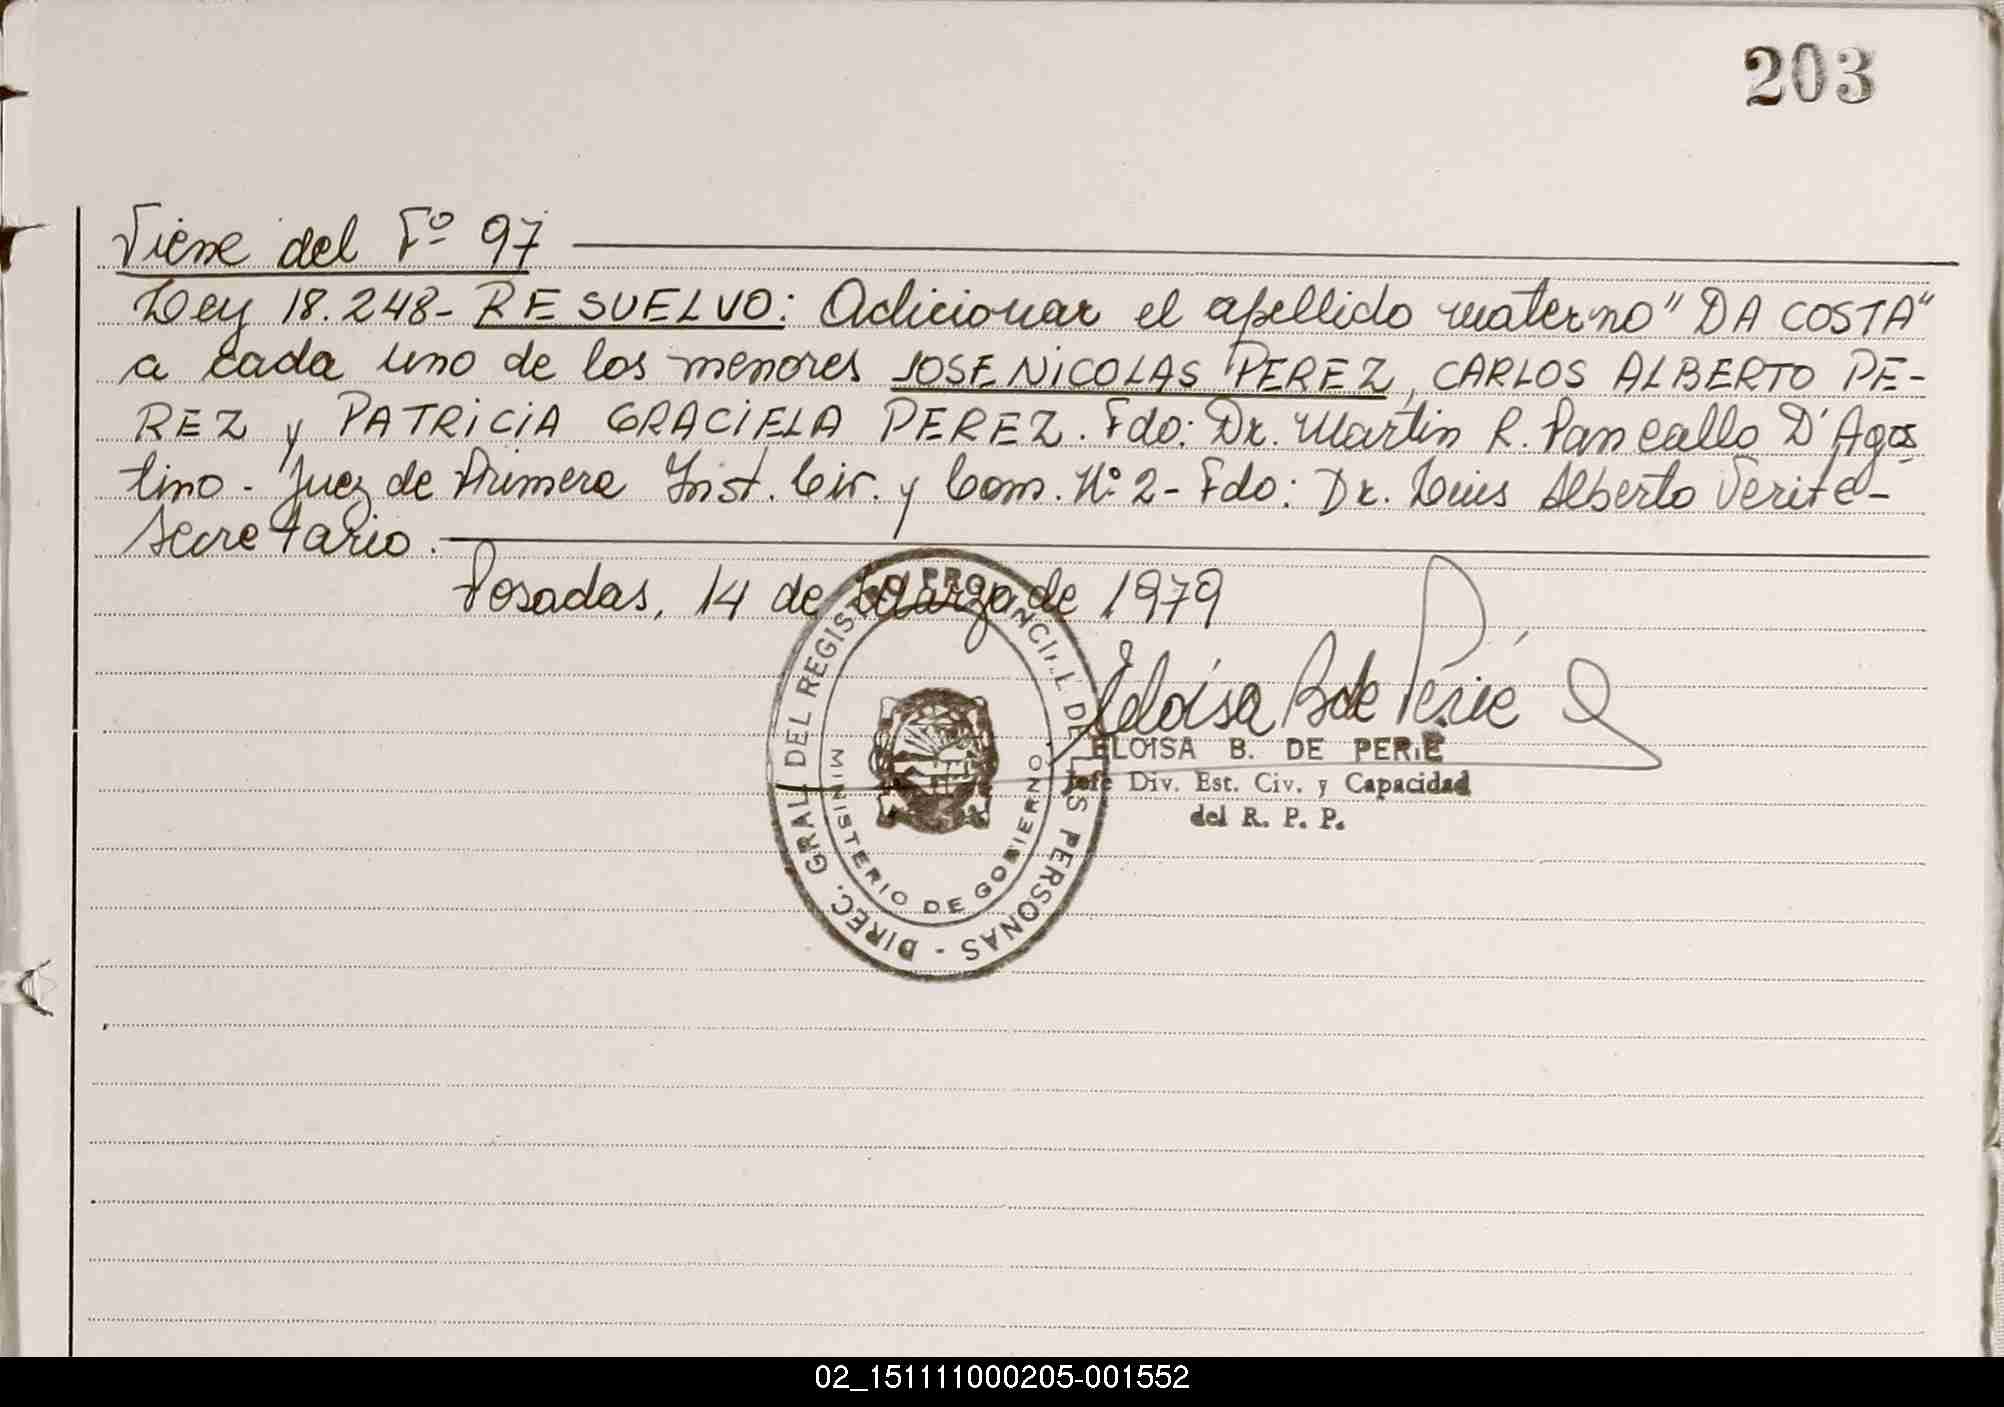 203
Viene del Fº 97
Ley 18.248- RESUELVO: Adicionar el apellido materno "DA COSTA"
a cada uno de los menores JOSE NICOLAS PEREZ, CARLOS ALBERTO PE-
REZ y PATRICIA GRACIELA PEREZ. Fdo: Dr. Martin R. Pancallo D'Agos
tino - Juez de Primera Inst. Civ. y Com. Nº 2- Fdo: Dr. Luis Alberto Verite-
Secretario.
Posadas, 14 de Marzo de 1979
Eloísa B de Perié
ELOISA B. DE PERIE
Jefe Div. Est. Civ. y Capacidad
del R. P. P.
DIREC. GRAL. DEL REGISTRO PROVINCIAL DE LAS PERSONAS -
MINISTERIO DE GOBIERNO
02_151111000205-001552